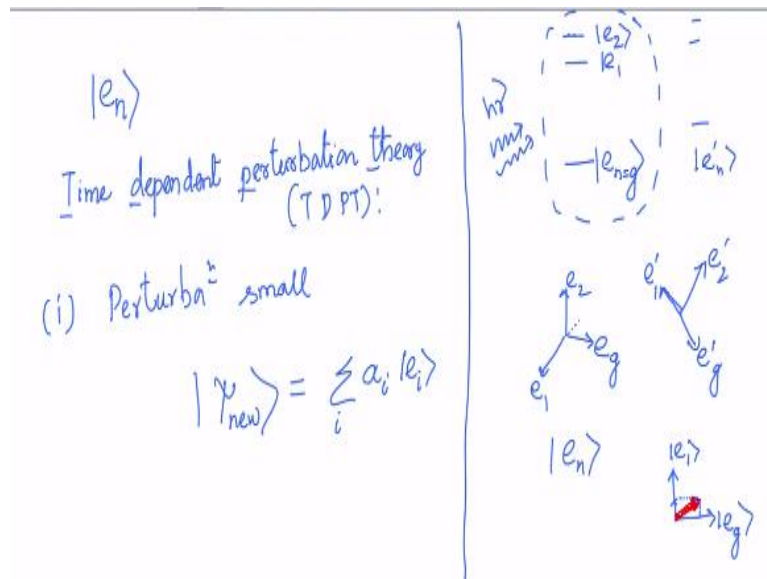 |eₙ⟩
Time dependent perturbation theory
(TDPT):
(i) Perturbaⁿ small
|ψ_new⟩ = Σ_i a_i |e_i⟩
|e₂⟩
|e₁
hν
|e_{n=g}⟩
|e′ₙ⟩
e₂
e_g
e₁
e′₁
e′₂
e′_g
|eₙ⟩
|e₁⟩
|e_g⟩